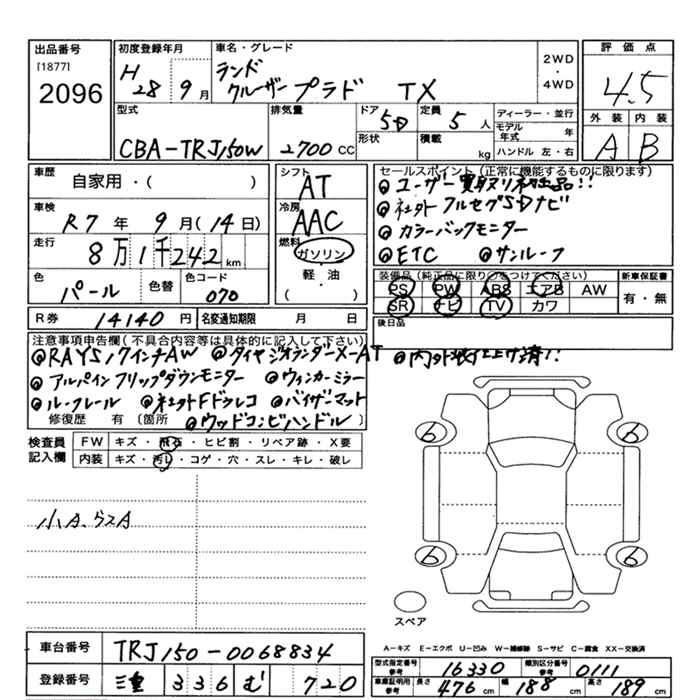 出品番号
[1877]
2096
初度登録年月
H 28 9月
車名・グレード
ランド
クルーザー プラド TX
2WD
・
4WD
評価点
4.5
外装 内装
A B
型式
CBA-TRJ150W
排気量
2700 CC
ドア 5D
形状
定員 5人
積載 kg
ディーラー・並行
モデル年式 年
ハンドル 左・右
車歴
自家用・( )
車検
R7年 9月(14日)
走行
8万1千242 km
色
パール
色替
色コード
070
シフト
AT
冷房
AAC
燃料
ガソリン
・
軽・油
( )
セールスポイント(正常に機能するものに限ります)
◎ユーザー買取り初出品!!
◎社外フルセグSDナビ
◎カラーバックモニター
◎ETC ◎サンルーフ
装備品(純正品に限り○をつけてください)
PS PW ABS エアB AW
SR ナビ TV カワ
新車保証書
有・無
後日品
R券 14140円
名変通知期限 月 日
注意事項申告欄(不具合内容等は具体的に記入して下さい)
◎RAYS17インチAW ◎タイヤジオランダーX-AT ◎内外装仕上げ済!!
◎アルパインフリップダウンモニター ◎ウィンカーミラー
◎ルーフレール ◎社外Fドラレコ ◎バイザーマット
修復歴 有 (箇所 ◎ウッドコンビハンドル )
検査員
記入欄
FW キズ・飛石・ヒビ割・リペア跡・X要
内装 キズ・汚レ・コゲ・穴・スレ・キレ・破レ
小A、ラスA
6 6
6 6
スペア
A－キズ E－エクボ U－凹み W－補修跡 S－サビ C－腐食 XX－交換済
車台番号
TRJ150-0068834
登録番号
三重 336 む 720
型式指定番号
参考
16330
類別区分番号
参考
0111
車庫証明用
参考
長さ 476 cm 幅 188 cm 高さ 189 cm